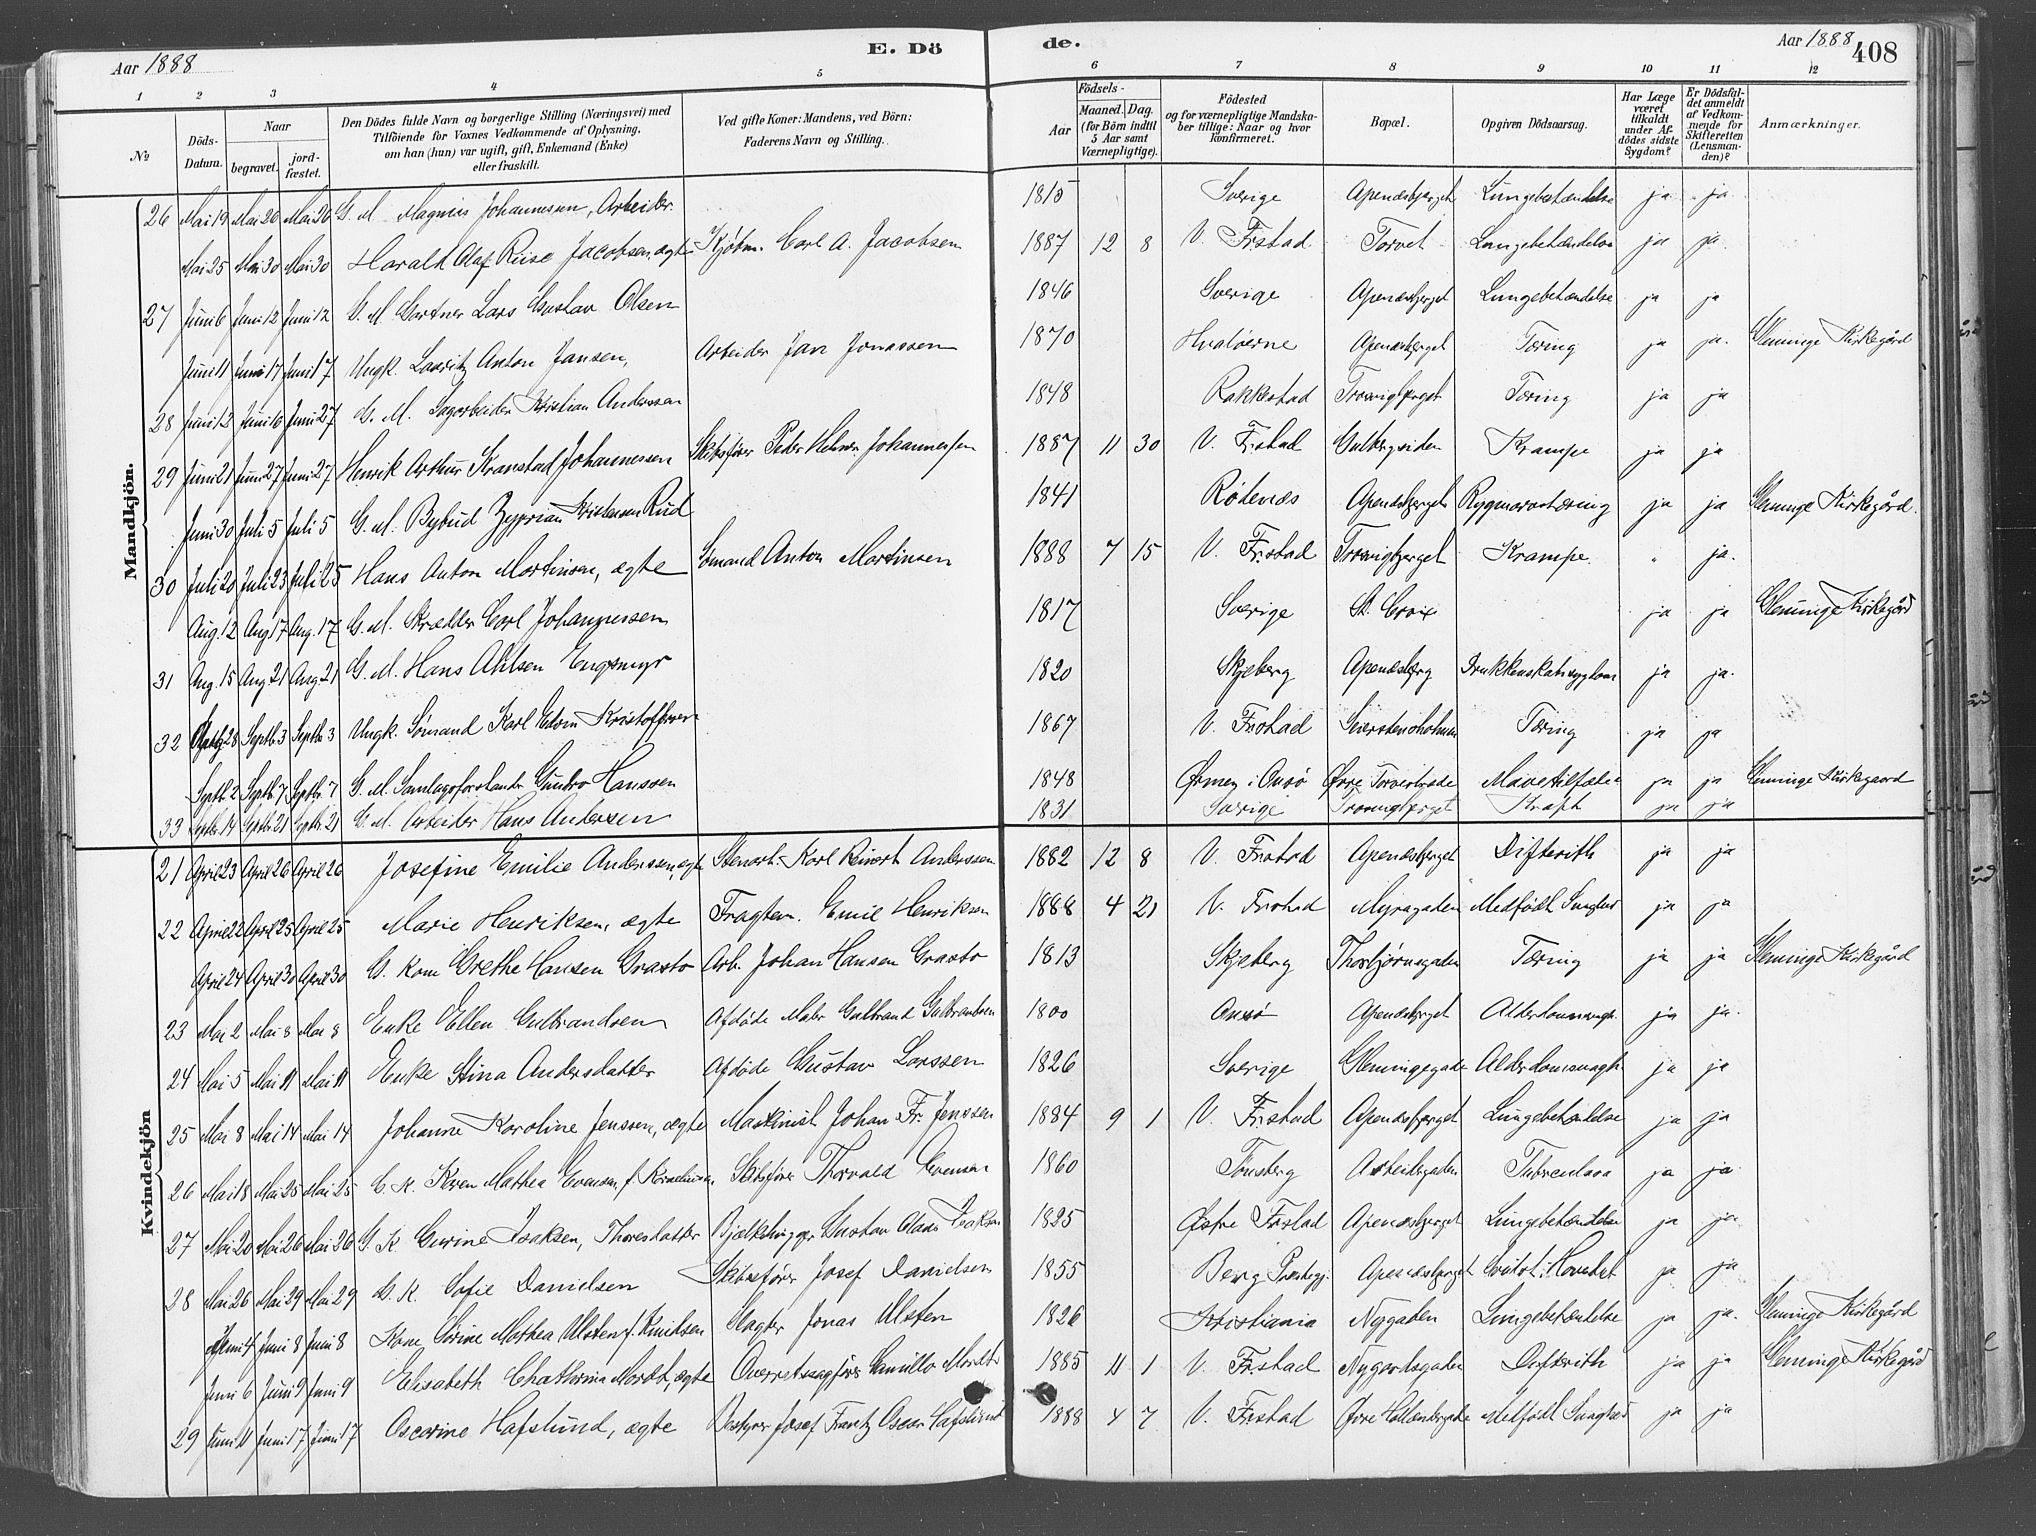 Aar 1888 E. Dö de. Aar 1888 408
1 2 3 4 5 6 7 8 9 10 11 12
№ Döds-Datum. Naar begravet. jord-fæstet. Den Dödes fulde Navn og borgerlige Stilling (Næringsvei) med Tilföiende for Voxnes Vedkommende af Oplysning, om han (hun) var ugift, gift, Enkemand (Enke) eller fraskilt. Ved gifte Koner: Mandens, ved Börn: Faderens Navn og Stilling. Födsels- Aar Maaned. Dag. (for Börn indtil 5 Aar samt Værnepligtige). Födested og for værnepligtige Mandskaber tillige: Naar og hvor konfirmeret. Bopæl. Opgiven Dödsaarsag. Har Læge været tilkaldt under Afdödes sidste Sygdom? Er Dödsfaldet anmeldt af Vedkommende for Skifteretten (Lensmanden)? Anmærkninger.
Mandkjön.
26 Mai 19 Mai 26 Mai 26 G. M. Magnus Johannessen, Arbeider 1815 Sverige Apenæsbjerget Lungebetændelse ja ja
Mai 25 Mai 30 Mai 30 Harald Olaf Riise Jacobsen, ægte Kjøbm. Carl A. Jacobsen 1887 12 8 V. Frstad Torvet Lungebetændelse ja ja
27 Juni 6 Juni 12 Juni 12 G. M. Gartner Lars Gustav Olsen 1846 Sverige Apenæsbjerget Lungebetændelse ja ja
Juni 11 Juni 17 Juni 17 Ungk. Lauritz Anton Jansen, Arbeider Jan Jonassen 1870 Hvaløerne Apenæsbjerget Tæring ja ja. Glemminge Kirkegård
28 Juni 13 Juni 16 Juni 27 G. M. Sagarbeider Kristian Anderssen 1848 Rakkestad Trosvigbjerget Tæring ja ja
29 Juni 21 Juni 27 Juni 27 Henrik Arthur Kranstad Johannessen Skibsfører Peder Helmer Johannessen 1887 11 30 V. Frstad Gulbergsiden Krampe ja ja
Juni 30 Juli 5 Juli 5 G. M. Bybud Zyprian Kristensen Rud 1841 Rødenæs Apenæsbjerget Rygmarvstæring ja ja Glemminge Kirkegård.
30 Juli 20 Juli 23 Juli 25 Hans Anton Martinsen, ægte Sømand Anton Martinsen 1888 7 15 V. Frstad Trosvigbjerget Krampe. " ja.
Aug. 12 Aug 17 Aug. 17 G. M. Skrædder Carl Johannessen 1817 Sverige St. Croix ja ja Glemminge Kirkegård
31 Aug. 15 Aug 21 Aug 21 G. M. Hans Ahlsen Engsmyr 1820 Skjeberg Apenæsbjerg Drukkenskabssygdom ja ja.
32 Aug 28 Septb. 3 Septbr. 3 Ungk. Sømand Karl Edvin Kristoffersen 1867 V. Frstad Tæring ja ja
Septb. 2 Septb. 7 Septbr. 7 G. M. Samlagsforstander Gundro Hanssen 1848 Ørmen i Onsø Øvre Torvestrade ja ja Glemminge Kirkegaard
33 Septbr. 14 Septb. 21 Septbr. 21 G. M. Arbeider Hans Andersen 1831 Sverige Trosvigbjerget Kræft ja ja
Kvindekjön
21 April 23 April 26 April 26 Josefine Emilie Anderssen, ægte Stenarb. Karl Reinert Anderssen 1882 12 8 V. Frstad Apenæsbjerget Difterith ja ja
22 April 22 April 25 April 25 Marie Henriksen, ægte Fragtem. Emil Henriksen 1888 4 21 V. Frstad Myragaden Medfødt Svaghed ja ja
April 24 April 30 April 30 G. Kone Grethe Hansen Grasto Arb. Johan Hansen Grasto 1813 Skjeberg Thorbjørnsgaden Tæring ja ja Glemminge Kirkegård
23 Mai 2 Mai 8 Mai 8 Enke Ellen Gulbrandsen Afdøde Matr. Gulbrand Gulbrandsen 1800 Onsø Apenæsbjerget Alderdomssvagh. ja ja.
24 Mai 5 Mai 11 Mai 11 Enke Stina Andersdatter Afdøde Gustav Larssen 1826 Sverige Glemmingegade Alderdomssvagh. ja ja
25 Mai 8 Mai 14 Mai 14 Johanne Karoline Jenssen, ægte Maskinist Johan Fr. Jenssen 1884 9 1 V. Frstad Apenæsbjerget Lungebetændelse ja ja
26 Mai 18 Mai 25 Mai 25 G. K. Karen Mathea Evensen, f. Kornelius Skibsfører Thorvald Evensen 1860 Tønsberg Arbeidergaden Tuberculosa ja ja
27 Mai 20 Mai 26 Mai 26 G. K. Gurine Isaksen, Thoresdatter Bjælkehugger Gustav Olaus Isaksen 1825 Østre Frstad Apenæsbjerget Lungebetændelse ja ja
28 Mai 26 Mai 29 Mai 29 G. K. Sofie Danielsen Skibsfører Josef Danielsen 1855 Berg Prestegj. Apenæsbjerget Hovedet ja ja
Juni 4 Juni 8 Juni 8 Kone Sorine Mathea Ulsten f. Knudsen Slagter Jonas Ulsten 1826 Kristiania Nygaden Lungebetændelse ja ja. Glemminge Kirkegård
Juni 6 Juni 9 Juni 9 Elisabeth Chatharina Mordt, ægte Overretssagfører Camillo Mordt 1885 11 1 V. Frstad Nygaardsgaden Difterith ja ja Glemminge Kirkegård
29 Juni 11 Juni 17 Juni 17 Oscarine Hafslund, ægte Bestyrer Josef Frantz Oscar Hafslund 1888 4 7 V. Frstad Øvre Medfødt Svaghed ja ja